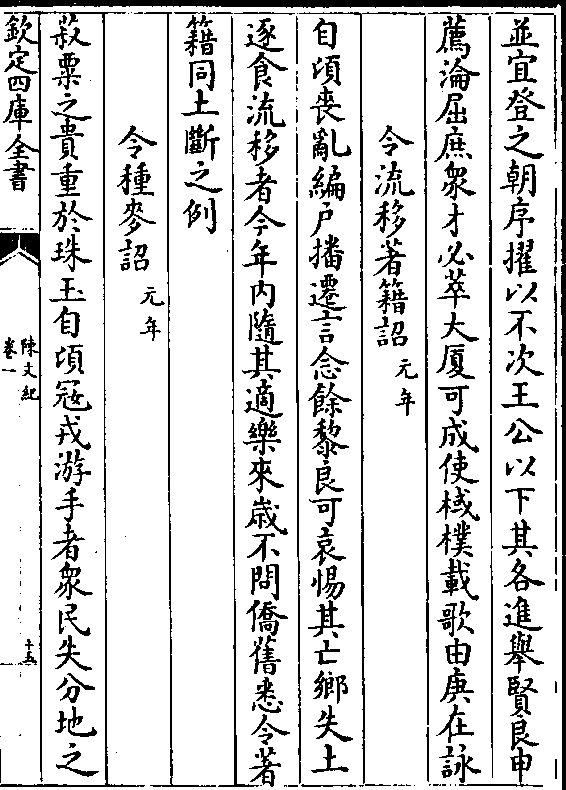 並宜登之朝序擢以不次王公以下其各進舉賢良申
薦淪屈庶衆才必萃大厦可成使棫樸載歌由庚在詠
令流移著籍詔元年
自頃喪亂編戶播遷言念餘黎良可哀惕其亡鄉失土
逐食流移者今年内隨其適樂來歲不問僑舊悉令著
籍同土斷之例
令種麥詔元年
菽粟之貴重於珠玉自頃冦戎游手者衆民失分地之
欽定四庫全書
陳文紀
卷一
十五